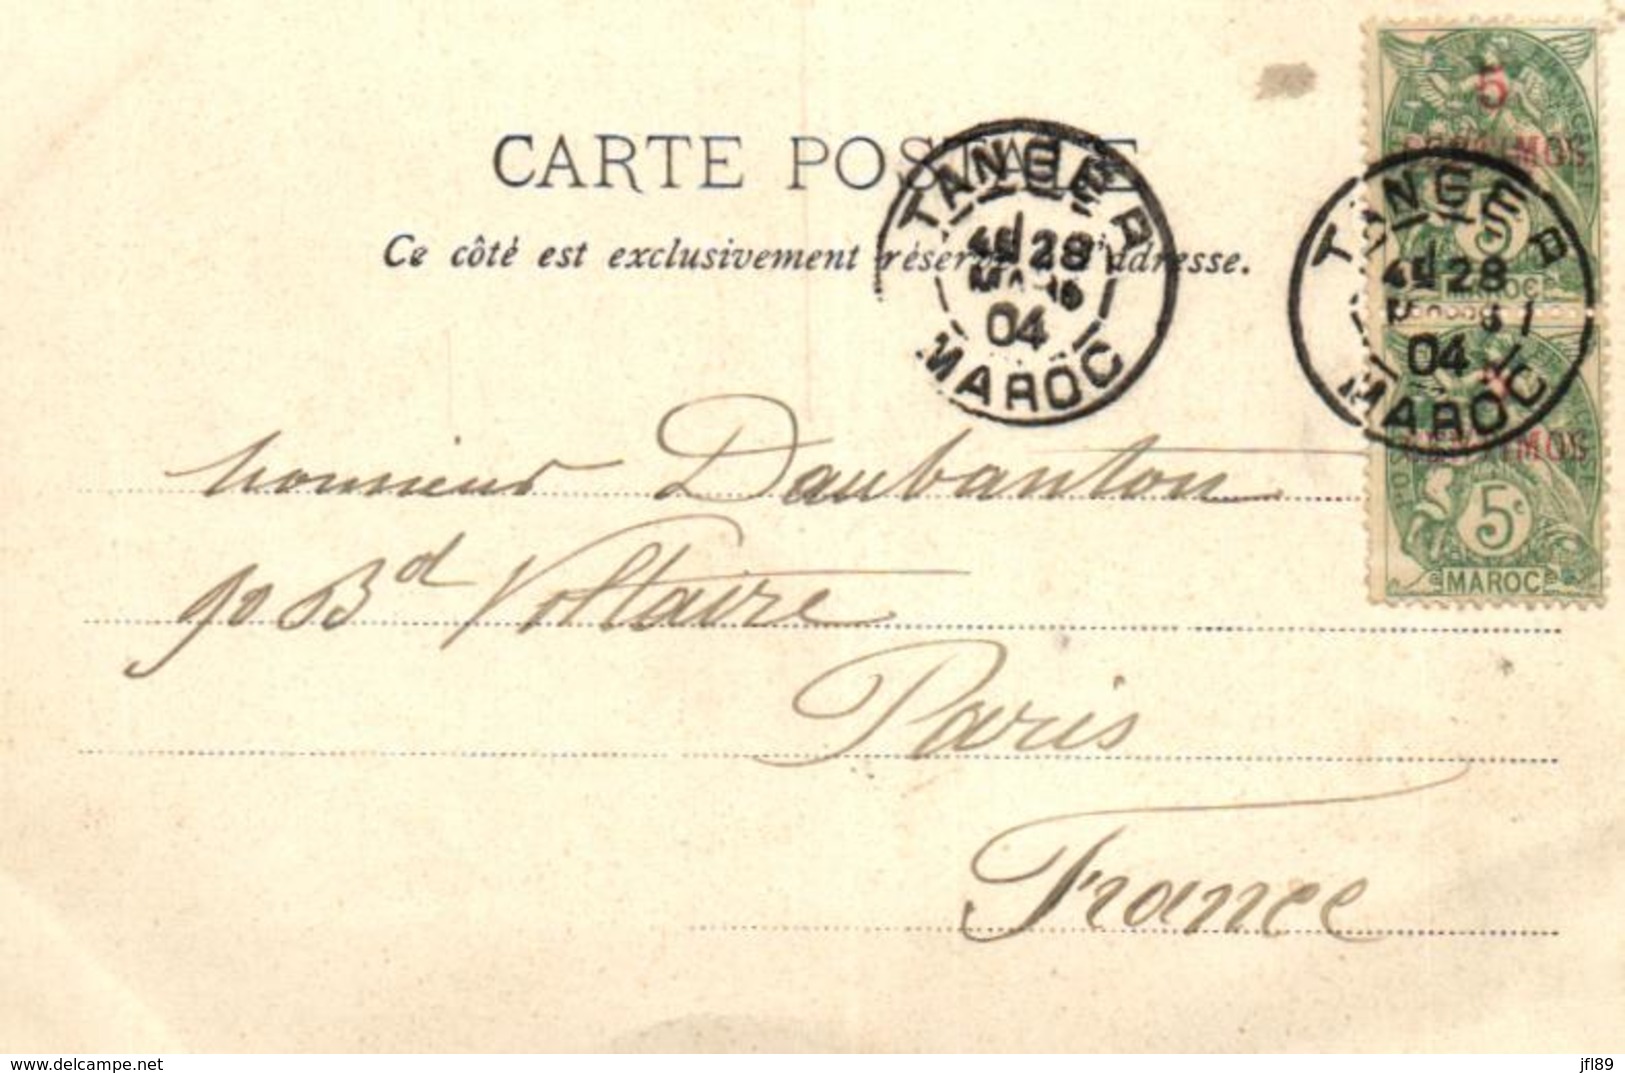 CARTE POSTALE
Ce côté est exclusivement réservé à l'adresse.
TANGER
4E 28
MARS
04
MAROC
TANGER
4E 28
04
MAROC
5
CENTIMOS
5
MAROC
CENTIMOS
5c
MAROC
Monsieur Daubanton
90 Bd Voltaire
Paris
France
delcampe.net
jfl89